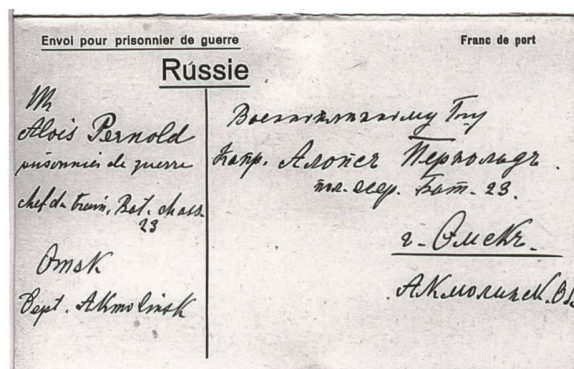 Envoi pour prisonnier de guerre
Franc de port
Russie
M
Alois Pernold
prisonnier de guerre
chef de train, Bat. chass.
23
Omsk
Dept. Akmolinsk
Военнопленному
Капр. Алоисъ Пернольдъ.
Бат. 23.
г. Омскъ.
Акмолинск. Об